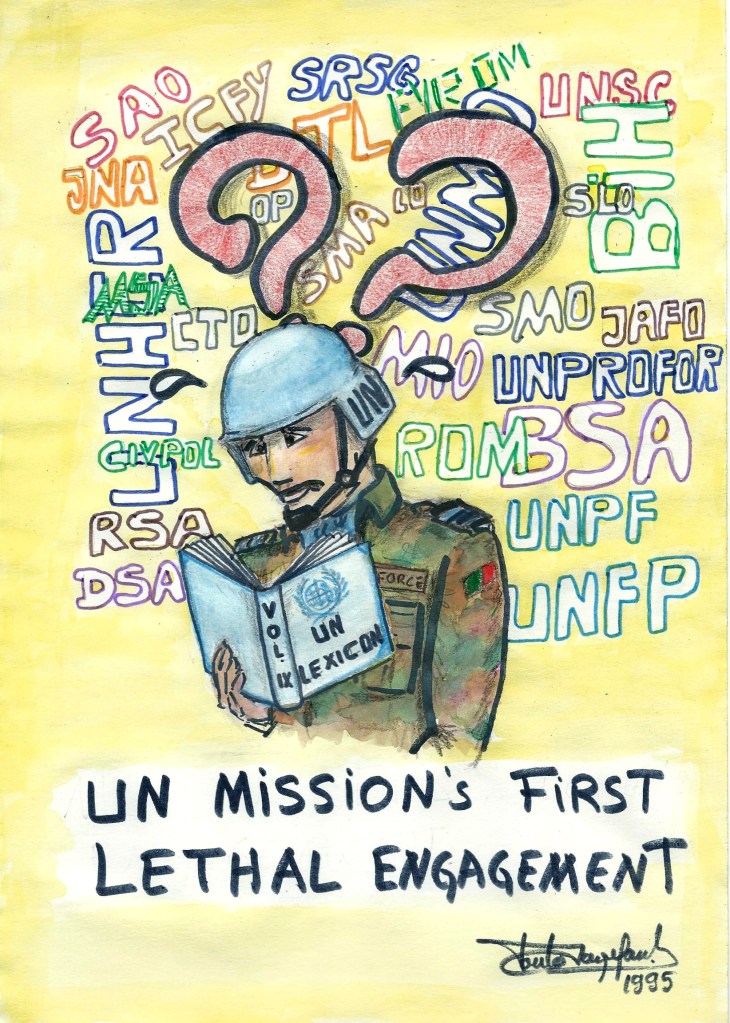 SAO
ICFY
SRSG
FYROM
UNSC
JNA
TL
OP
SMA
LO
SILO
BIH
UNHCR
MSA
CTO
MIO
SMO
JAFO
UNPROFOR
UN
CIVPOL
ROM
BSA
RSA
UNPF
DSA
FORCE
UNFP
VOL. IX
UN
LEXICON
UN MISSION'S FIRST
LETHAL ENGAGEMENT
1995